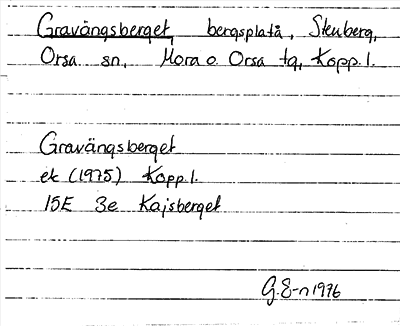 Gravängsberget, bergsplatå, Stenberg,
Orsa sn, Mora o. Orsa tg, Kopp. l.
Gravängsberget
ek (1975) Kopp. l.
15E 3e Kajsberget
G.E-n 1976